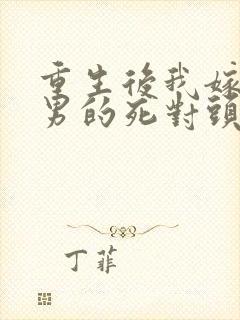 重生後我嫁
男的死對頭
丁菲